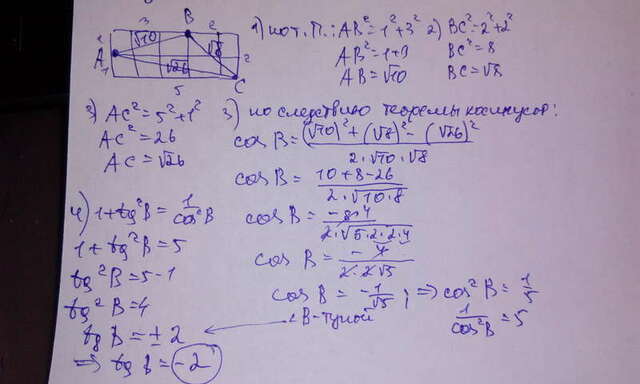 3 B 2
√10 √8
2 A 1 √26 2
5 C
1) по т. П.: AB² = 1² + 3²
AB² = 1 + 9
AB = √10
2) BC² = 2² + 2²
BC² = 8
BC = √8
3) AC² = 5² + 1²
AC² = 26
AC = √26
3) по следствию теоремы косинусов:
cos B = ((√10)² + (√8)² - (√26)²) / (2 · √10 · √8)
cos B = (10 + 8 - 26) / (2 · √10 · 8)
cos B = -8 4 / (2 · √5 · 2 · 2 · 4)
cos B = -4 / (2 · 2√5)
cos B = -1/√5 ; ⇒ cos² B = 1/5
1/cos² B = 5
4) 1 + tg² B = 1/cos² B
1 + tg² B = 5
tg² B = 5 - 1
tg² B = 4
tg B = ± 2 ← ∠B - тупой
⇒ tg B = -2